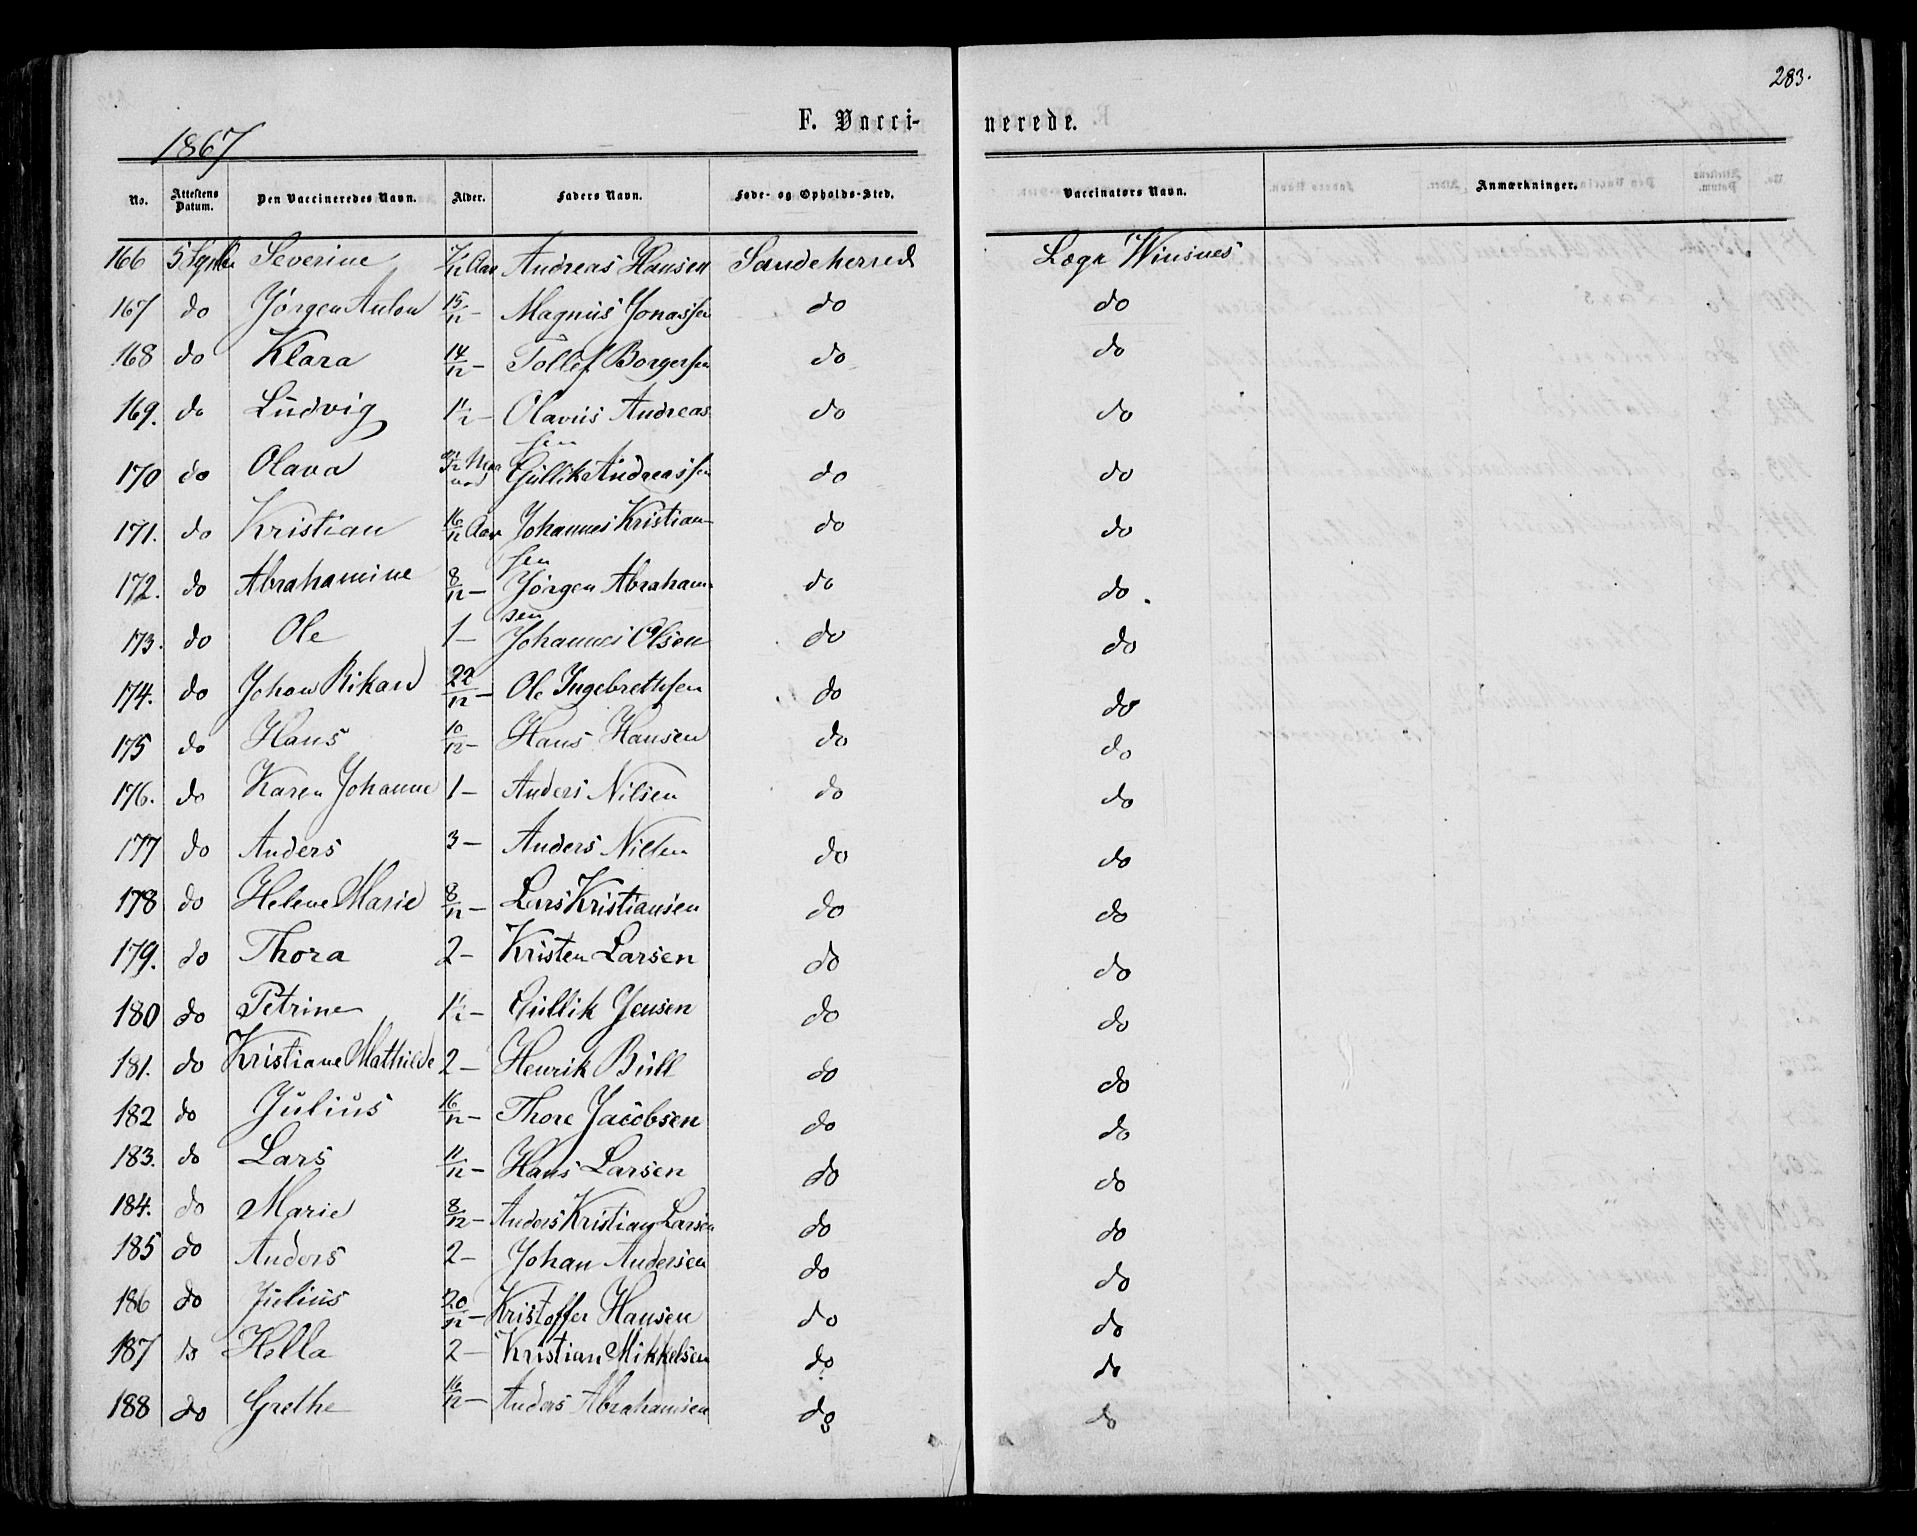 283.
F. Vacci- nerede.
1867
No. Attestens Datum. Den Vaccineredes Navn. Alder. Faders Navn. Føde- og Opholds-Sted. Vaccinators Navn. Anmærkninger.
166 5 Septbr Severine 7/12 Aar Andreas Hansen Sandeherred Læge Winsnes
167 do Jörgen Anton 15/12 – Magnus Jonassen do do
168 do Klara 14/12 – Tollef Borgersen do do
169. do Ludvig 1½ – Olavus Andreas
sen do do
170 do Olava Maa
ned Gullik Andreassen do do
171. do Kristian 16/12 Aar Johannes Kristian-
sen do do
172. do Abrahamine 8/12 – Jørgen Abraham-
sen do do
173. do Ole 1 – Johannes Olsen do do
174. do Johan Rikard 22/12 – Ole Ingebrethsen do do
175 do Hans 10/12 – Hans Hansen do do
176. do Karen Johanne 1 – Anders Nilsen do do
177 do Anders 3 – Anders Nilsen do do
178 do Helene Marie 8/12 – Lars Kristiansen do do
179. do Thora 2 – Kristen Larsen do do
180 do Petrine 1½ – Gullik Jensen do do
181. do Kristiane Mathilde 2 – Henrik Bull do do
182 do Julius 16/12 – Thore Jacobsen do do
183. do Lars 11/12 – Hans Larsen do do
184. do Marie 8/12 – Anders Kristian Larsen do do
185 do Anders 2 – Johan Andersen do do
186 do Julius 20/12 – Kristoffer Hansen do do
187 do Hella 2 – Kristian Mikkelsen do do
188 do Grethe 16/12 – Anders Abrahamsen do do